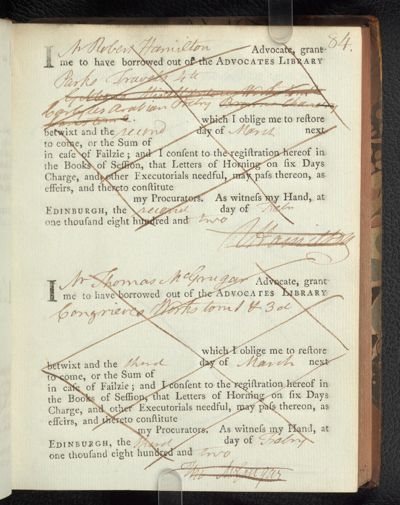 84.
I Mr Robert Hamilton Advocate, grant
me to have borrowed out of the ADVOCATES LIBRARY
Parks Travels
which I oblige me to reſtore
betwixt and the second day of March next
to come, or the Sum of
in caſe of Failzie; and I conſent to the regiſtration hereof in
the Books of Seſſion, that Letters of Horning on ſix Days
Charge, and other Executorials needful, may paſs thereon, as
effeirs, and thereto conſtitute
my Procurators. As witneſs my Hand, at
EDINBURGH, the second day of
one thouſand eight hundred and two
I Mr Thomas McGrugar Advocate, grant
me to have borrowed out of the ADVOCATES LIBRARY
Congrieves Works tom 1 & 3d
which I oblige me to reſtore
betwixt and the third day of March next
to come, or the Sum of
in caſe of Failzie; and I conſent to the regiſtration hereof in
the Books of Seſſion, that Letters of Horning on ſix Days
Charge, and other Executorials needful, may paſs thereon, as
effeirs, and thereto conſtitute
my Procurators. As witneſs my Hand, at
EDINBURGH, the third day of Febry
one thouſand eight hundred and two
Tho McGrugar